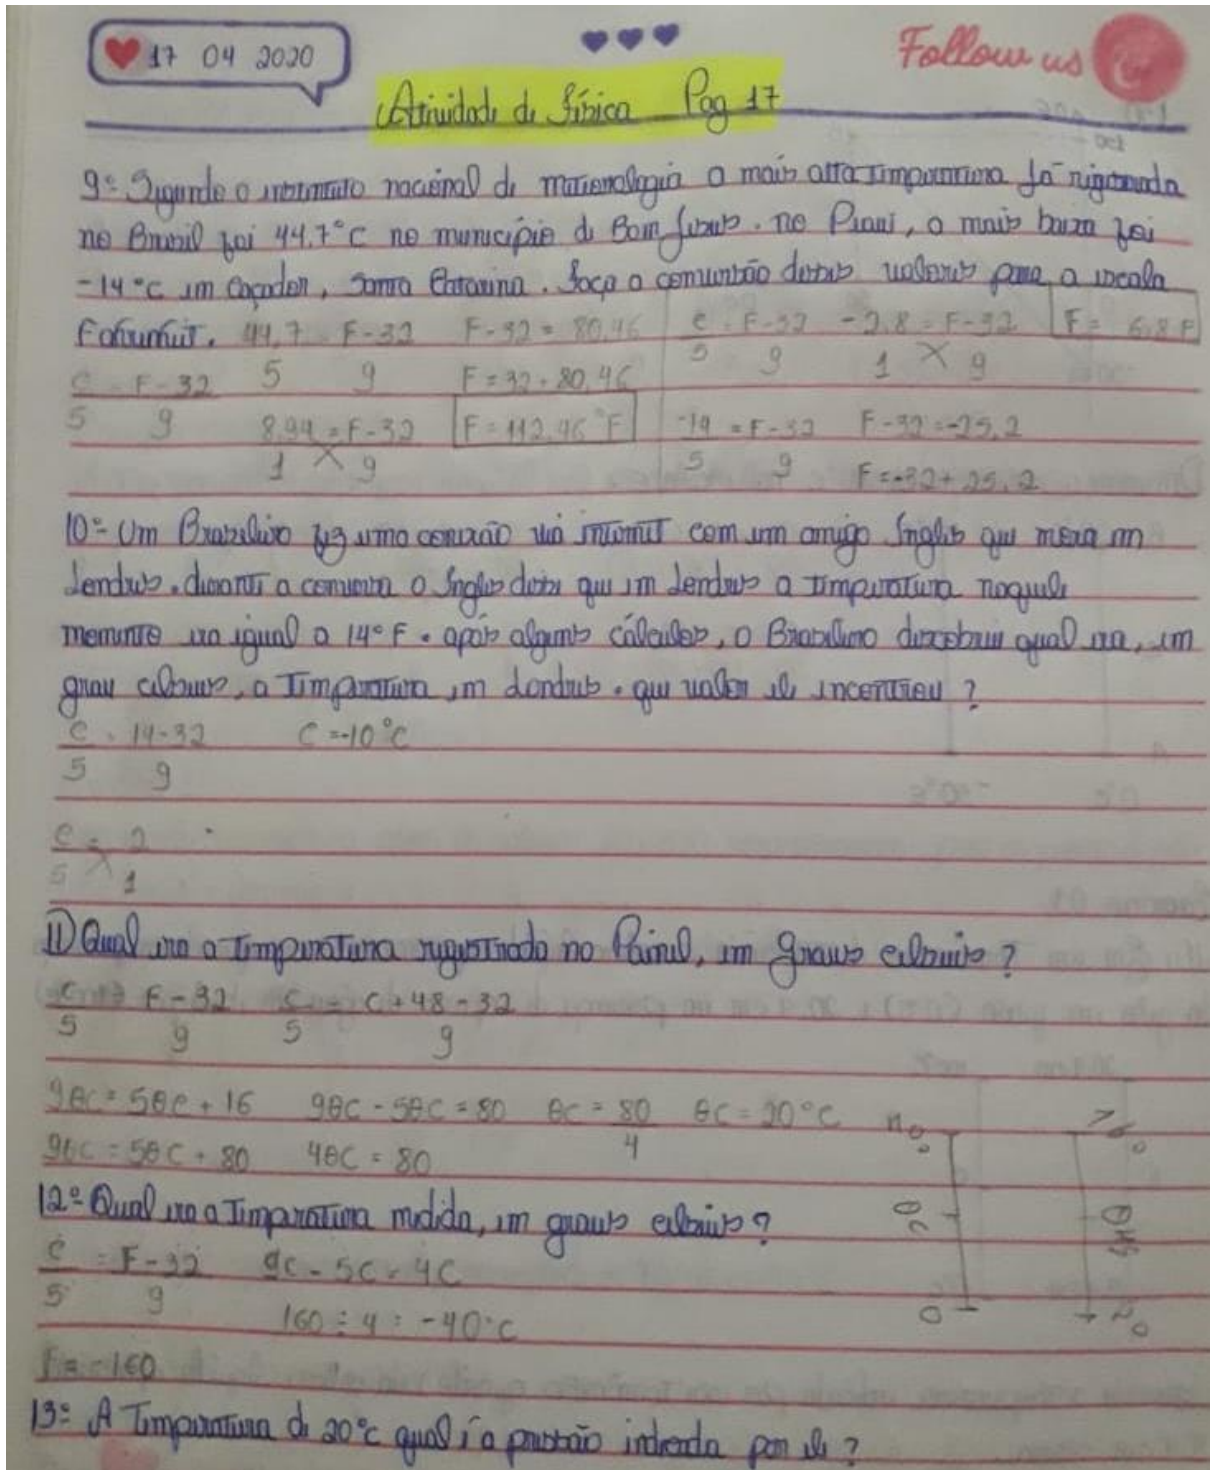 17 04 2020
Follow us
Atividade de física Pag 17
9º Segundo o instituto nacional de meteorologia a mais alta temperatura já registrada
no Brasil foi 44,7°C no município de Bom Jesus. no Piauí, a mais baixa foi
-14°C em Caçador, Santa Catarina. faça a conversão desses valores para a escala
44,7 = F-32 F-32 = 80,46 C = F-32 -2,8 = F-32 F = 6,8 F
5 9 5 9 1 9
C = F-32 F = 32 + 80,46
5 9
8,94 = F-32 F = 112,46 °F -14 = F-32 F-32 = -25,2
1 9 5 9 F = 32 + 25,2
10º Um Brasileiro fez uma conexão via internet com um amigo Inglês que mora em
Londres. durante a conversa o Inglês disse que em Londres a temperatura naquele
momento era igual a 14°F. após alguns cálculos, o Brasileiro descobriu qual era, em
grau celsius, a Temperatura em Londres. que valor ele encontrou?
C = 14-32 C = -10°C
5 9
C = 2
5 1
11) Qual era a temperatura registrada no Painel, em graus celsius?
C F-32 C = C + 48 - 32
5 9 5 9
9θC = 5θC + 16 9θC - 5θC = 80 θC = 80 θC = 20°C
4
9θC = 5θC + 80 4θC = 80
12º Qual era a Temperatura medida, em graus celsius?
C = F-32 9C - 5C = 4C
5 9
160 ÷ 4 = -40°C
F = -160
θC
13º A Temperatura de 20°C qual é a pressão indicada por ele?